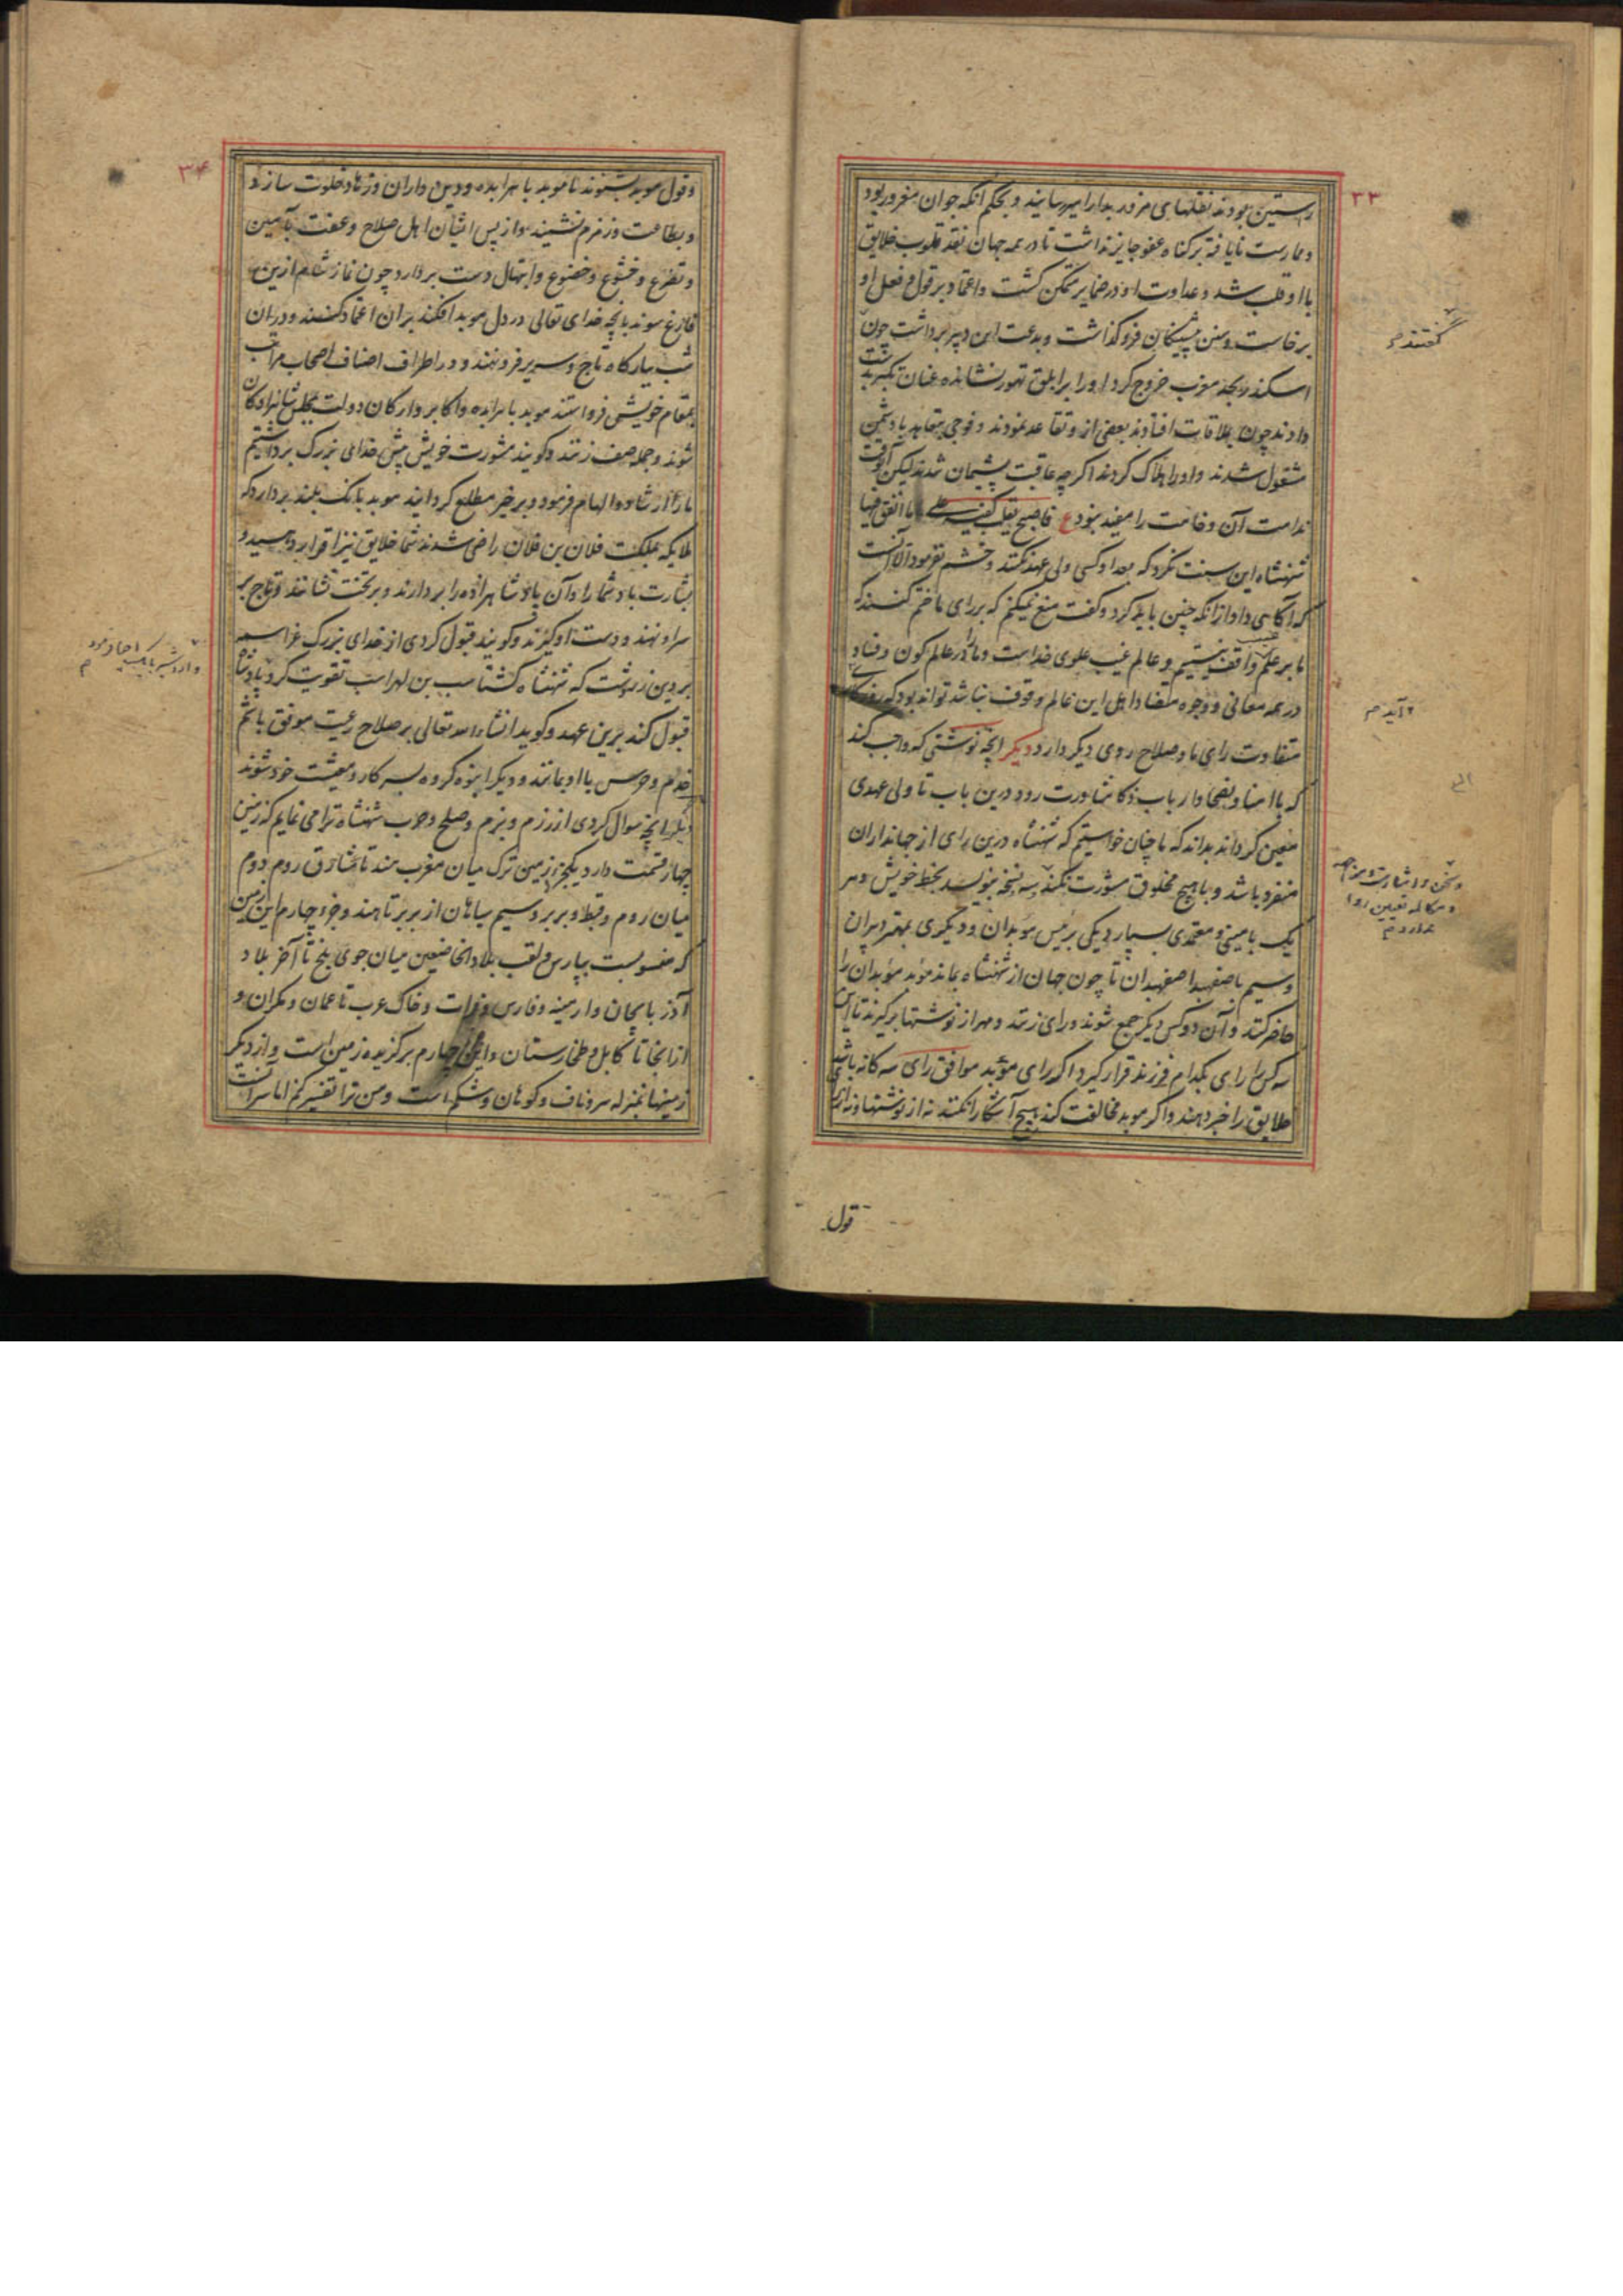 ۳۳
راستین بودند نقلهای مزور بدارا میرسانیدند و بحکم آنکه جوان مغرور بود
و ممارست نایافته بر گناه عفو جایز نداشت تا در همه جهان نقد قلوب خلایق
با او قلب شد و عداوت او در ضمایر متمکن گشت و اعتماد بر قول و فعل او
برخاست و سنن پیشینگان فرو گذاشت و بدعت این دبیر برداشت چون
اسکندر بحد مغرب خروج کرد او را بر ابلق تهور نشانده عنان تکبر بدست
دادند چون بملاقات افتادند بعضی ازو تقاعد نمودند و فوجی بتقاید با دشمن
مشغول شدند و او را هلاک کردند اگر چه عاقبت پشیمان شدند لیکن آنوقت
ندامت آن وخامت را مفید نبود ع فاصبح یقلب کفیه علی ما انفق فیها
شهنشاه این سنت نکرد که بعد او کسی ولی عهد نکند و ختم نفرمود الا آنست
که آگاهی داد از آنکه چنین باید کرد و گفت منع نمیکنم که بر رای ما ختم کنند که
ما بر علم غیب واقف نیستیم و عالم غیب علوی خداست و ما در عالم کون و فساد
در همه معانی و وجوه متضاد اهل این عالم وقوف نباشد تواند بود که روزگاری
متفاوت رای ما و صلاح روی دیگر دارد دیگر آنچه نوشتی که واجب کند
که با امنا و نصحا و ارباب ذکا مشاورت رود درین باب تا ولی عهدی
معین گرداند بداند که ما چنان خواستیم که شهنشاه درین رای از جهانداران
منفرد باشد و با هیچ مخلوق مشورت نکند سه نسخه بنویسد بخط خویش و هر
یک بامینی و معتمدی سپارد یکی برئیس موبدان و دیگری بمهتر دبیران
و سیم باصفهبد اصفهبدان تا چون جهان از شهنشاه بماند موبد موبدان را
حاضر کنند و آن دو کس دیگر جمع شوند و رای زنند و مهر از نوشتها برگیرند تا این
سه کس را رای بکدام فرزند قرار گیرد اگر رای موبد موافق رای سه گانه باشد
خلایق را خبر دهند و اگر موبد مخالفت کند هیچ آشکارا نکنند نه از نوشتها و نه از رای
گفتند
آید م
الی
قول
۳۴
و قول موبد بشنوند تا موبد با هرابده و دین داران و زهاد خلوت سازد
و بطاعت و زمزم نشیند و از پس ایشان اهل صلاح و عفت بآمین
و تضرع و خشوع و خضوع و ابتهال دست بردارد چون نماز شام ازین
فارغ شوند بآنچه خدای تعالی در دل موبد افکند بران اعتماد کنند و در آن
شب ببارگاه تاج و سریر فرو نهند و در اطراف اصناف اصحاب مراتب
بمقام خویش فرو استند موبد با هرابده و اکابر و ارکان دولت بمجلس شاهزادگان
شوند و جمله صف زنند و گویند مشورت خویش پیش خدای بزرگ برداشتیم
ما را ارشاد و الهام فرمود و بر خیر مطلع گردانید موبد بانگ بلند بردارد که
ملایکه بملکت فلان بن فلان راضی شدند شما خلایق نیز اقرار دهید و
بشارت باد شما را و آن پادشاهزاده را بردارند و بر تخت نشانند و تاج بر
سر او نهند و دست او گیرند و گویند قبول کردی از خدای بزرگ عز اسمه
بر دین زردشت که شهنشاه گشتاسب بن لهراسب تقویت کرد پادشاه
قبول کند برین عهد و گوید انشاء الله تعالی بر صلاح رعیت موفق باشم
خدم و حرس با او بمانند و دیگر انبوه گروه بسر کار و معیشت خود شوند
دیگر آنچه سوال کردی از رزم و بزم و صلح و حرب شهنشاه ترا می نمایم که زمین
چهار قسمت دارد یکجزو زمین ترک میان مغرب هند تا مشارق روم دوم
میان روم و قبط و بربر و سیم سیاهان از بربر تا هند و جزو چهارم این زمین
که منسوبست بپارس و لقب بلاد الخاضعین میان جوی بلخ تا آخر بلاد
آذربایجان و ارمینه و فارس و فرات و خاک عرب تا عمان و مکران و
از آنجا تا کابل و طخارستان و این چهارم برگزیده زمین است و از دیگر
زمینها بمنزله سر و ناف و کوهان و شکم است و من ترا تفسیر کنم اما سر آنست
و اردشیر بابک احیا فرمود م